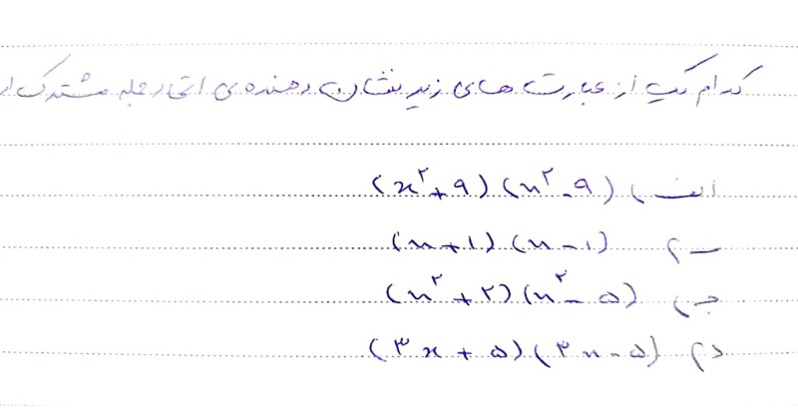 کدام یک از عبارت های زیر نشان دهنده ی اتحاد جمله مشترک ا
الف) (x²+۹)(x²-۹)
ب) (x+۱)(x-۱)
ج) (x²+۲)(x²-۵)
د) (۳x+۵)(۳x-۵)